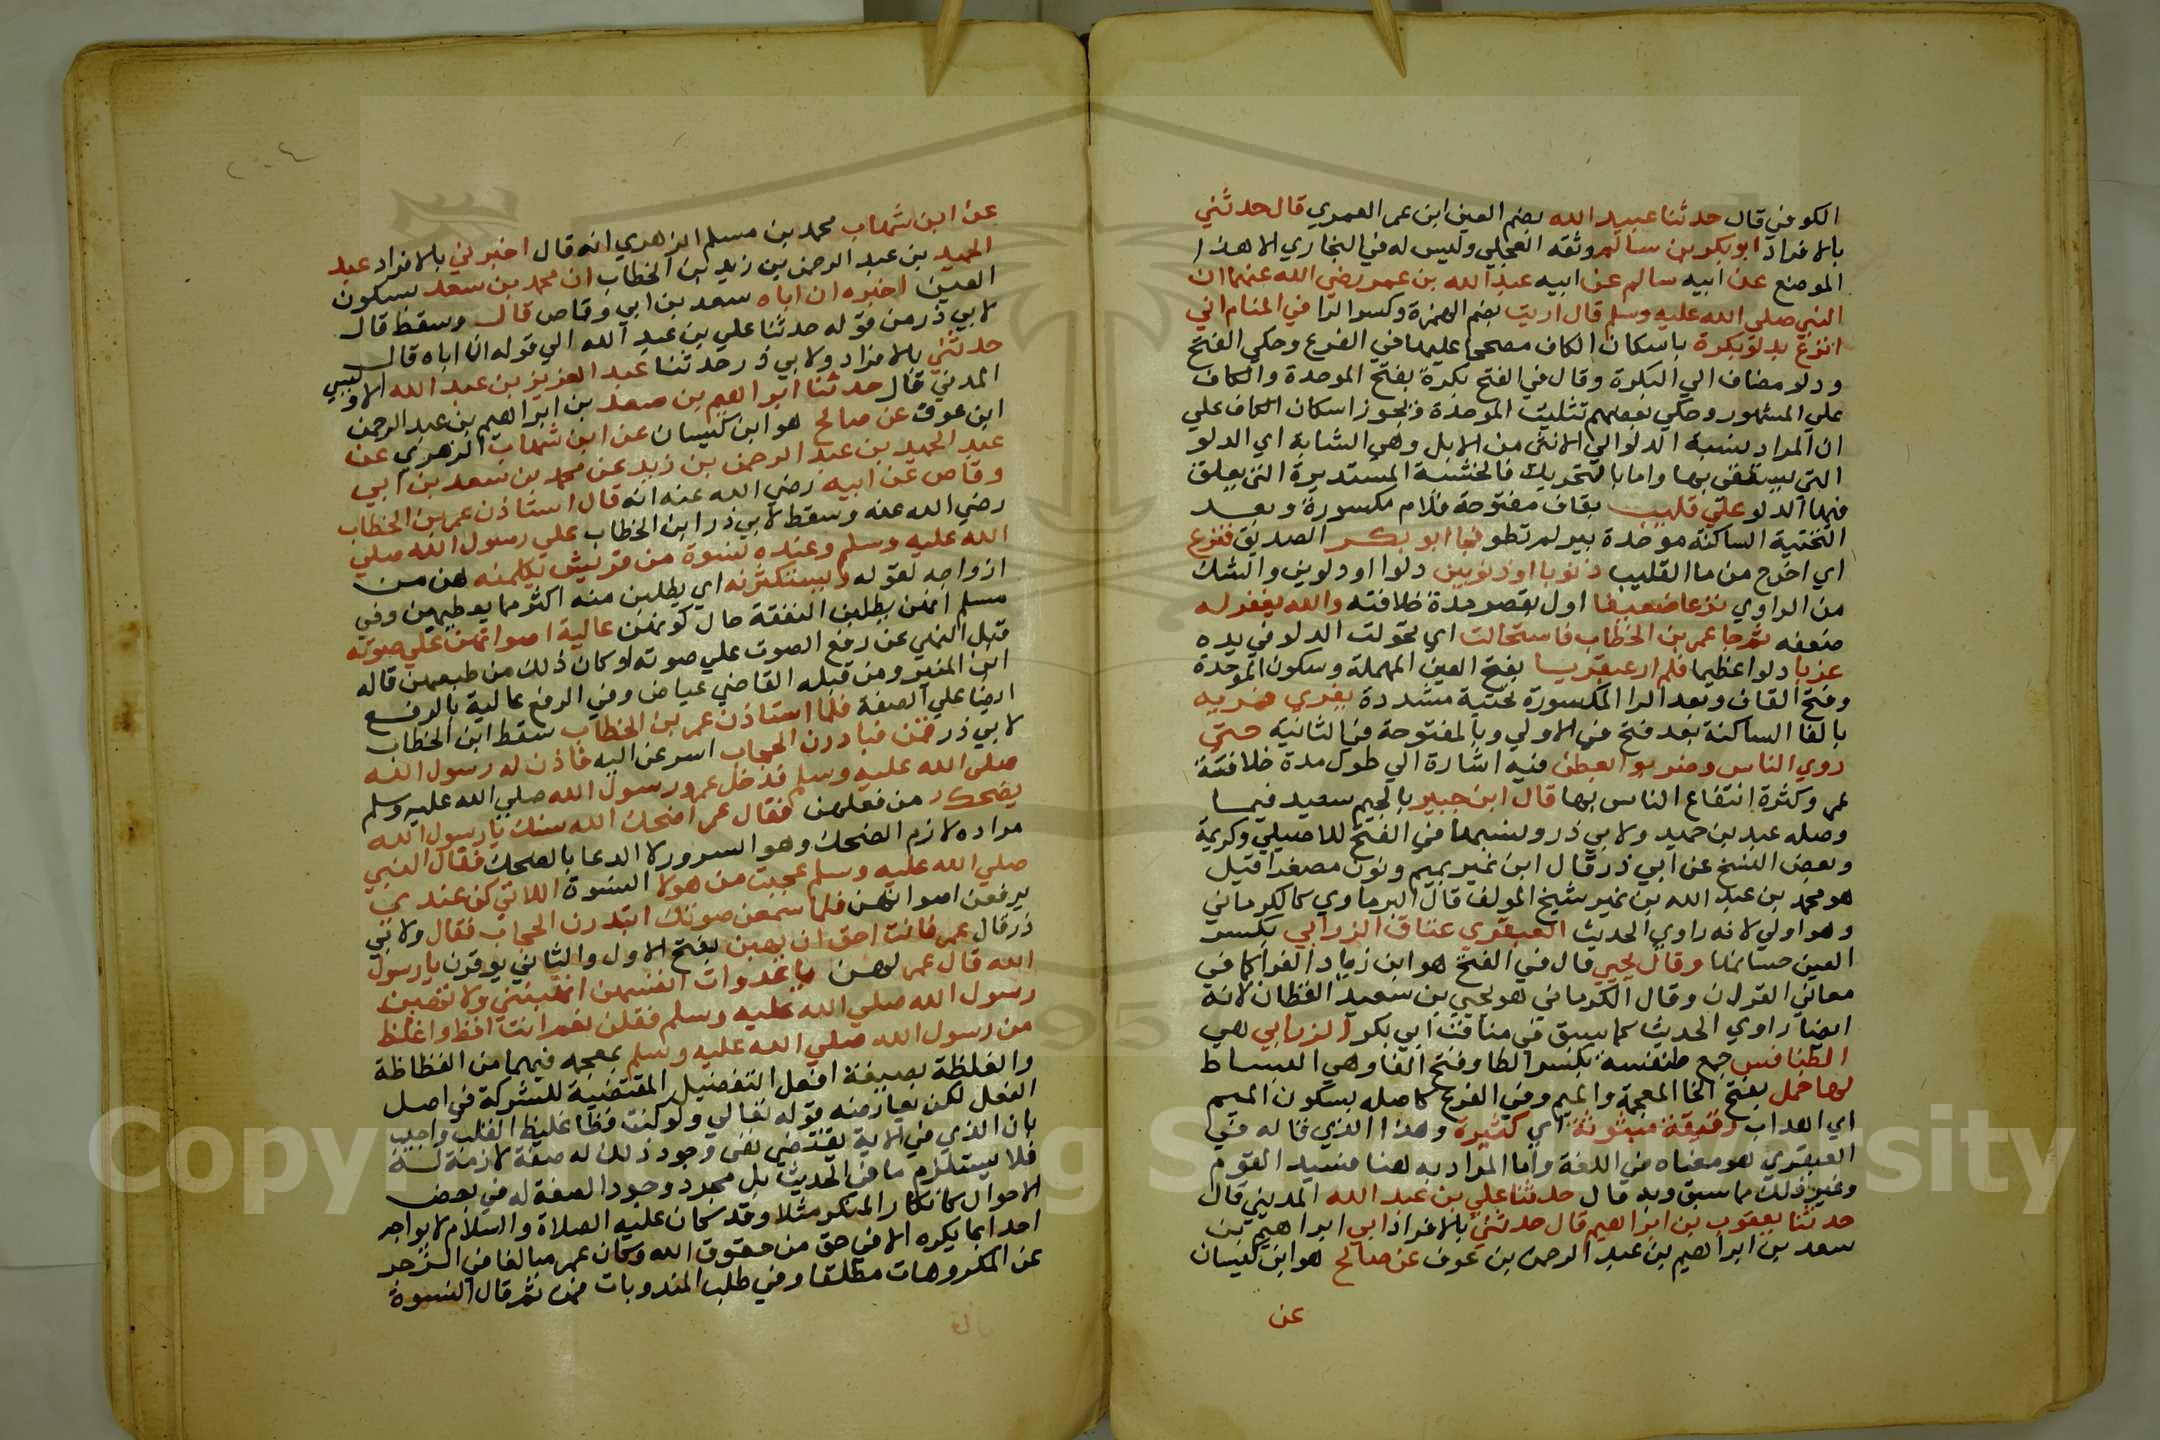 الكوفي قال حدثنا عبيد الله بضم العين ابن عمر العمري قال حدثني
بالافراد ابو بكر بن سالم وثقه العجلي وليس له في البخاري الا هذا
الموضع عن ابيه سالم عن ابيه عبد الله بن عمر رضي الله عنهما ان
النبي صلي الله عليه وسلم قال اريت بضم الهمزة وكسر الرا في المنام اني
انزع بدلو بكرة باسكان الكاف مصححا عليها في الفرع وحكي الفتح
ودلو مضاف الي البكرة وقال في الفتح بكرة بفتح الموحدة والكاف
علي المشهور وحكي بعضهم تثليث الموحدة ويجوز اسكان الكاف علي
ان المراد بنسبة الدلو الي الانثي من الابل وهي الشابة اي الدلو
التي يستقي بها واما بالتحريك فالخشبة المستديرة التي يعلق
فيها الدلو علي قليب بقاف مفتوحة فلام مكسورة وبعد
التحتية الساكنة موحدة بير لم تطو فجا ابو بكر الصديق فنزع
اي اخرج من ما القليب ذنوبا او ذنوبين دلوا او دلوين والشك
من الراوي نزعا ضعيفا اول بقصر مدة خلافته والله يغفر له
ضعفه ثم جا عمر بن الخطاب فاستحالت اي تحولت الدلو في يده
غربا دلوا عظيما فلم ار عبقريا بفتح العين المهملة وسكون الموحدة
وفتح القاف وبعد الرا المكسورة تحتية مشددة يفري فريه
بالفا الساكنة بعد فتح في الاولي وبالمفتوحة في الثانية حتي
روي الناس وضربوا بعطن فيه اشارة الي طول مدة خلافة
عمر وكثرة انتفاع الناس بها قال ابن جبير بالجيم سعيد فيما
وصله عبد بن حميد ولابي ذر ونسبها في الفتح للاصيلي وكريمة
وبعض النسخ عن ابي ذر قال ابن نمير بميم ونون مصغرا قيل
هو محمد بن عبد الله بن نمير شيخ المولف قال البرماوي كالكرماني
وهو اولي لانه راوي الحديث العبقري عتاق الزرابي بكسر
العين حسانها وقال يحيي قال في الفتح هو ابن زياد الفرا كما في
معاني القران وقال الكرماني هو يحيي بن سعيد القطان لانه
ايضا راوي الحديث كما سبق في مناقب ابي بكر الزرابي هي
الطنافس جمع طنفسة بكسر الطا وفتح الفا وهي البساط
لها خمل بفتح الخا المعجمة والميم وفي الفرع كاصله بسكون الميم
اي اهداب رقيقة مبثوثة اي كثيرة وهذا الذي قاله في
العبقري هو معناه في اللغة واما المراد به هنا فسيد القوم
وغير ذلك مما سبق وبه قال حدثنا علي بن عبد الله المديني قال
حدثنا يعقوب بن ابراهيم قال حدثني بالافراد ابي ابراهيم بن
سعد بن ابراهيم بن عبد الرحمن بن عوف عن صالح هو ابن كيسان
عن
عن ابن شهاب محمد بن مسلم الزهري انه قال اخبرني بالافراد عبد
الحميد بن عبد الرحمن بن زيد بن الخطاب ان محمد بن سعد بسكون
العين اخبره ان اباه سعد بن ابي وقاص قال وسقط قال
لابي ذر من قوله حدثنا علي بن عبد الله الي قوله ان اباه قال
حدثني بالافراد ولابي ذر حدثنا عبد العزيز بن عبد الله الاويسي
المدني قال حدثنا ابراهيم بن سعد بن ابراهيم بن عبد الرحمن
ابن عوف عن صالح هو ابن كيسان عن ابن شهاب الزهري عن
عبد الحميد بن عبد الرحمن بن زيد عن محمد بن سعد بن ابي
وقاص عن ابيه رضي الله عنه انه قال استاذن عمر بن الخطاب
رضي الله عنه وسقط لابي ذر ابن الخطاب علي رسول الله صلي
الله عليه وسلم وعنده نسوة من قريش يكلمنه هن من
ازواجه لقوله ويستكثرنه اي يطلبن منه اكثر مما يعطيهن وفي
مسلم انهن يطلبن النفقة حال كونهن عالية اصواتهن علي صوته
قبل النهي عن رفع الصوت علي صوته او كان ذلك من طبعهن قاله
ابن المنير ومن قبله القاضي عياض وفي الرفع عالية بالرفع
ايضا علي الصفة فلما استاذن عمر بن الخطاب سقط ابن الخطاب
لابي ذر قمن فبادرن الحجاب اسرعن اليه فاذن له رسول الله
صلي الله عليه وسلم فدخل عمر ورسول الله صلي الله عليه وسلم
يضحك من فعلهن فقال عمر اضحك الله سنك يا رسول الله
مراده لازم الضحك وهو السرور لا الدعا بالضحك فقال النبي
صلي الله عليه وسلم عجبت من هولا النسوة اللاتي كن عندي
يرفعن اصواتهن فلما سمعن صوتك ابتدرن الحجاب فقال ولابي
ذر قال عمر فانت احق ان يهبن بفتح الاول والثاني يوقرن يا رسول
الله قال عمر لهن يا عدوات انفسهن اتهبنني ولا تهبن
رسول الله صلي الله عليه وسلم فقلن نعم انت افظ واغلظ
من رسول الله صلي الله عليه وسلم بمعجمه فيهما من الفظاظة
والغلظة بصيغة افعل التفضيل المقتضية للشركة في اصل
الفعل لكن يعارضه قوله تعالي ولو كنت فظا غليظ القلب واجيب
بان الذي في الاية يقتضي نفي وجود ذلك له صفة لازمة له
فلا يستلزم ما في الحديث بل مجرد وجود الصفة له في بعض
الاحوال كانكار المنكر مثلا وقد كان عليه الصلاة والسلام لا يواجه
احدا بما يكره الا في حق من حقوق الله وكان عمر مبالغا في الزجر
عن المكروهات مطلقا وفي طلب المندوبات فمن ثم قال النسوة